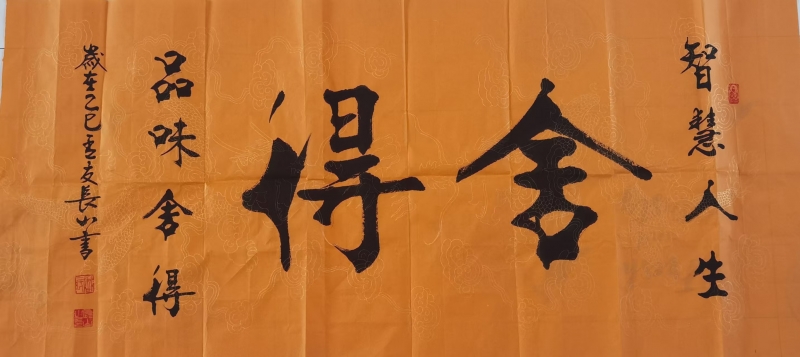 智慧人生
舍得
品味舍得
歲在乙巳友長書